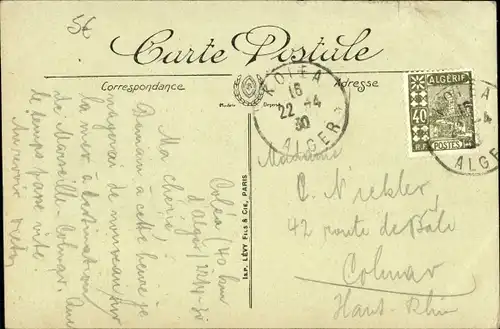 56
Carte Postale
Correspondance
Adresse
KOLEA
16
22 -4
30
ALGER
ALGÉRIE
40
POSTES
ALGE
Coléa (40 km
d'Alger) 22-4-30
Ma chérie!
Demain à cette heure je
nagerai de nouveau sur
la mer à destination
de Marseille-Colmar. Que
le temps passe vite!
Au revoir
IMP. LÉVY FILS & Cie, PARIS
Madame
C. Niebler
42 route de Bâle
Colmar
Haut-Rhin